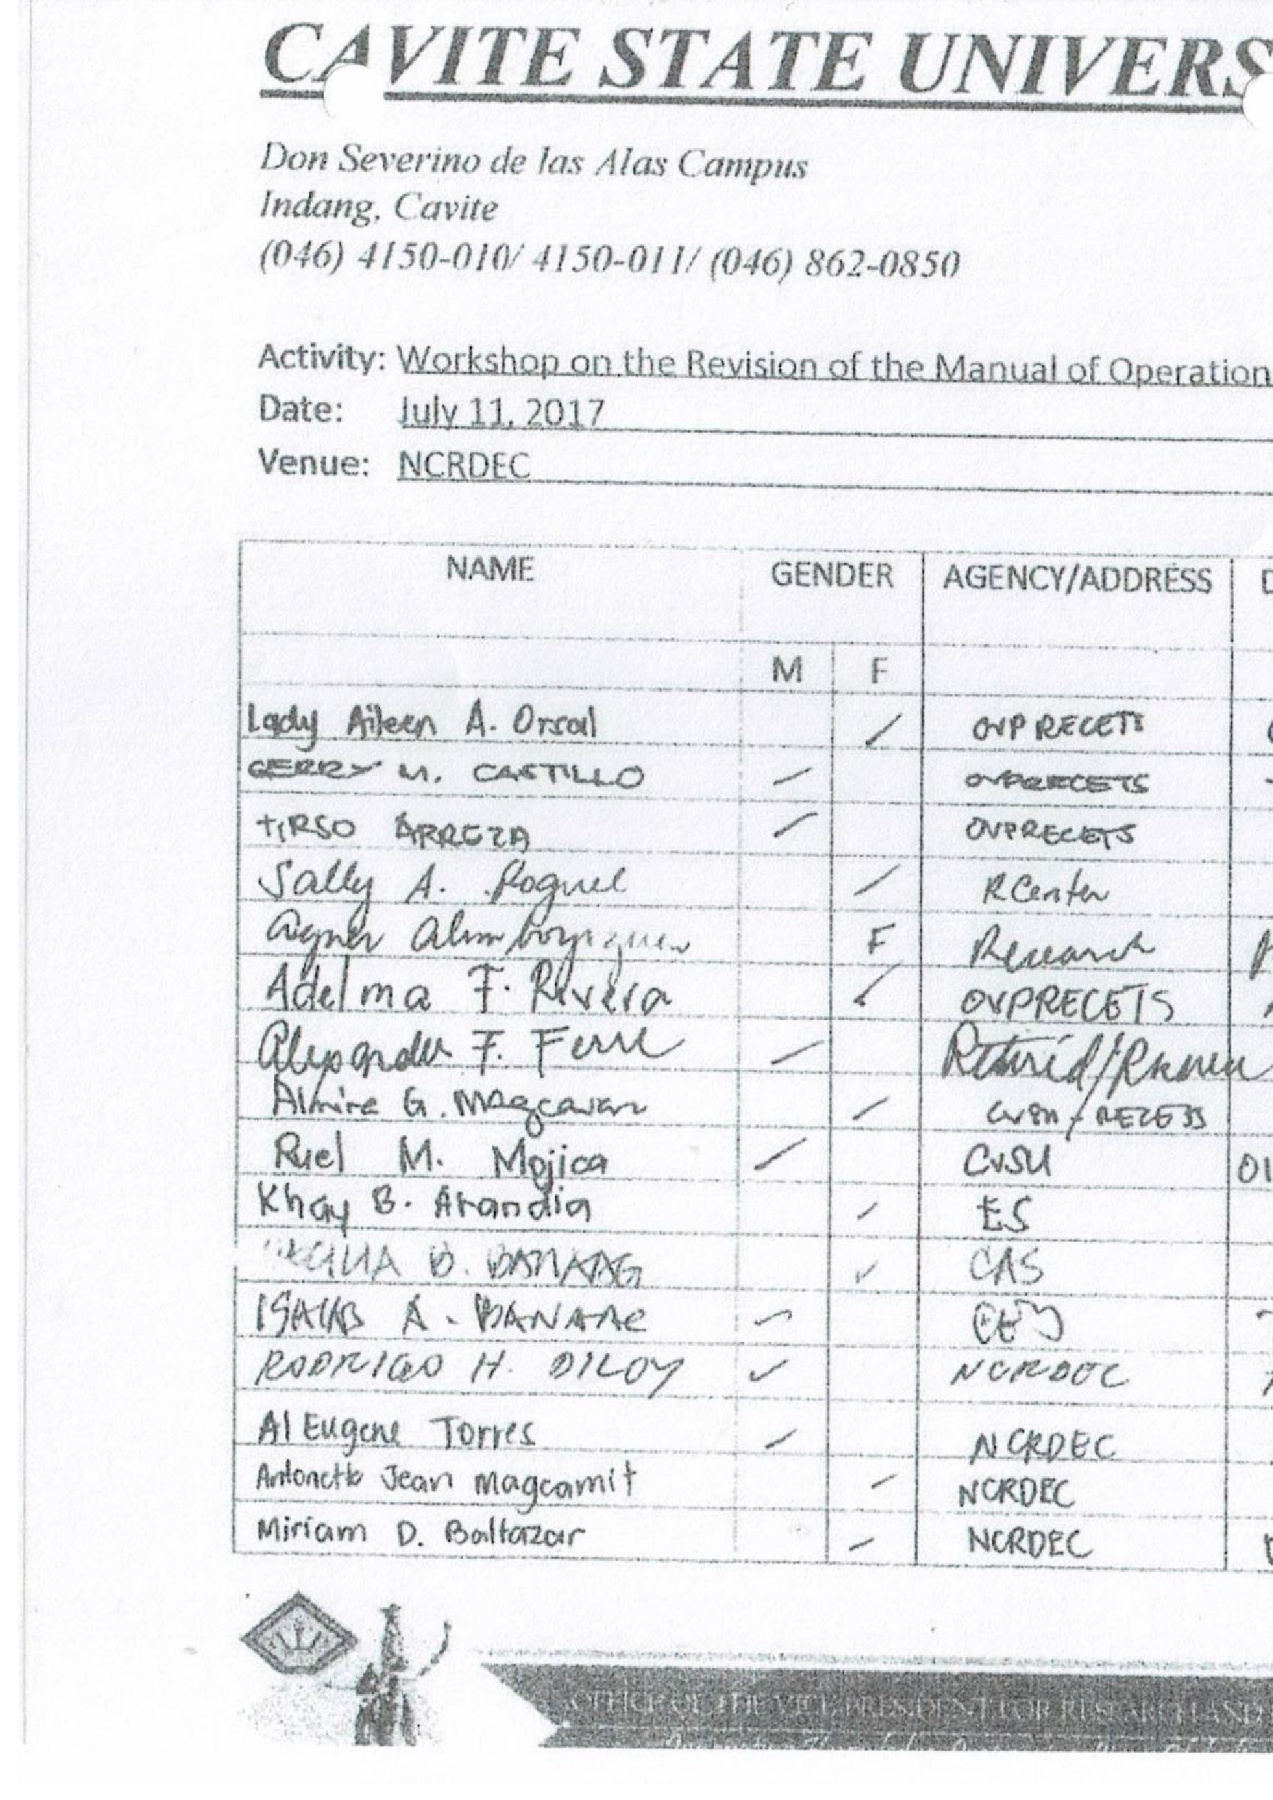 CAVITE STATE UNIVERS
Don Severino de las Alas Campus
Indang, Cavite
(046) 4150-010/ 4150-011/ (046) 862-0850
Activity: Workshop on the Revision of the Manual of Operation
Date: July 11, 2017
Venue: NCRDEC
NAME GENDER AGENCY/ADDRESS D
M F
Lady Aileen A. Orsal OVPRECETS
GERRY M. CASTILLO OVPRECETS
TIRSO ARREZA OVPRECETS
Sally A. RCenter
F Research
Adelma F. Rivera OVPRECETS
Alexander F. Retired/
Almira G. Magcawas CvSU / RECETS
Ruel M. Mojica CvSU
Khay B. Arandia ES
B. BANAAG CAS
A. BANAAG
RODRIGO H. DILOY NCRDEC
Al Eugene Torres NCRDEC
Antonette Jean Magcamit NCRDEC
Miriam D. Baltazar NCRDEC
OFFICE OF THE VICE PRESIDENT FOR RESEARCH AND